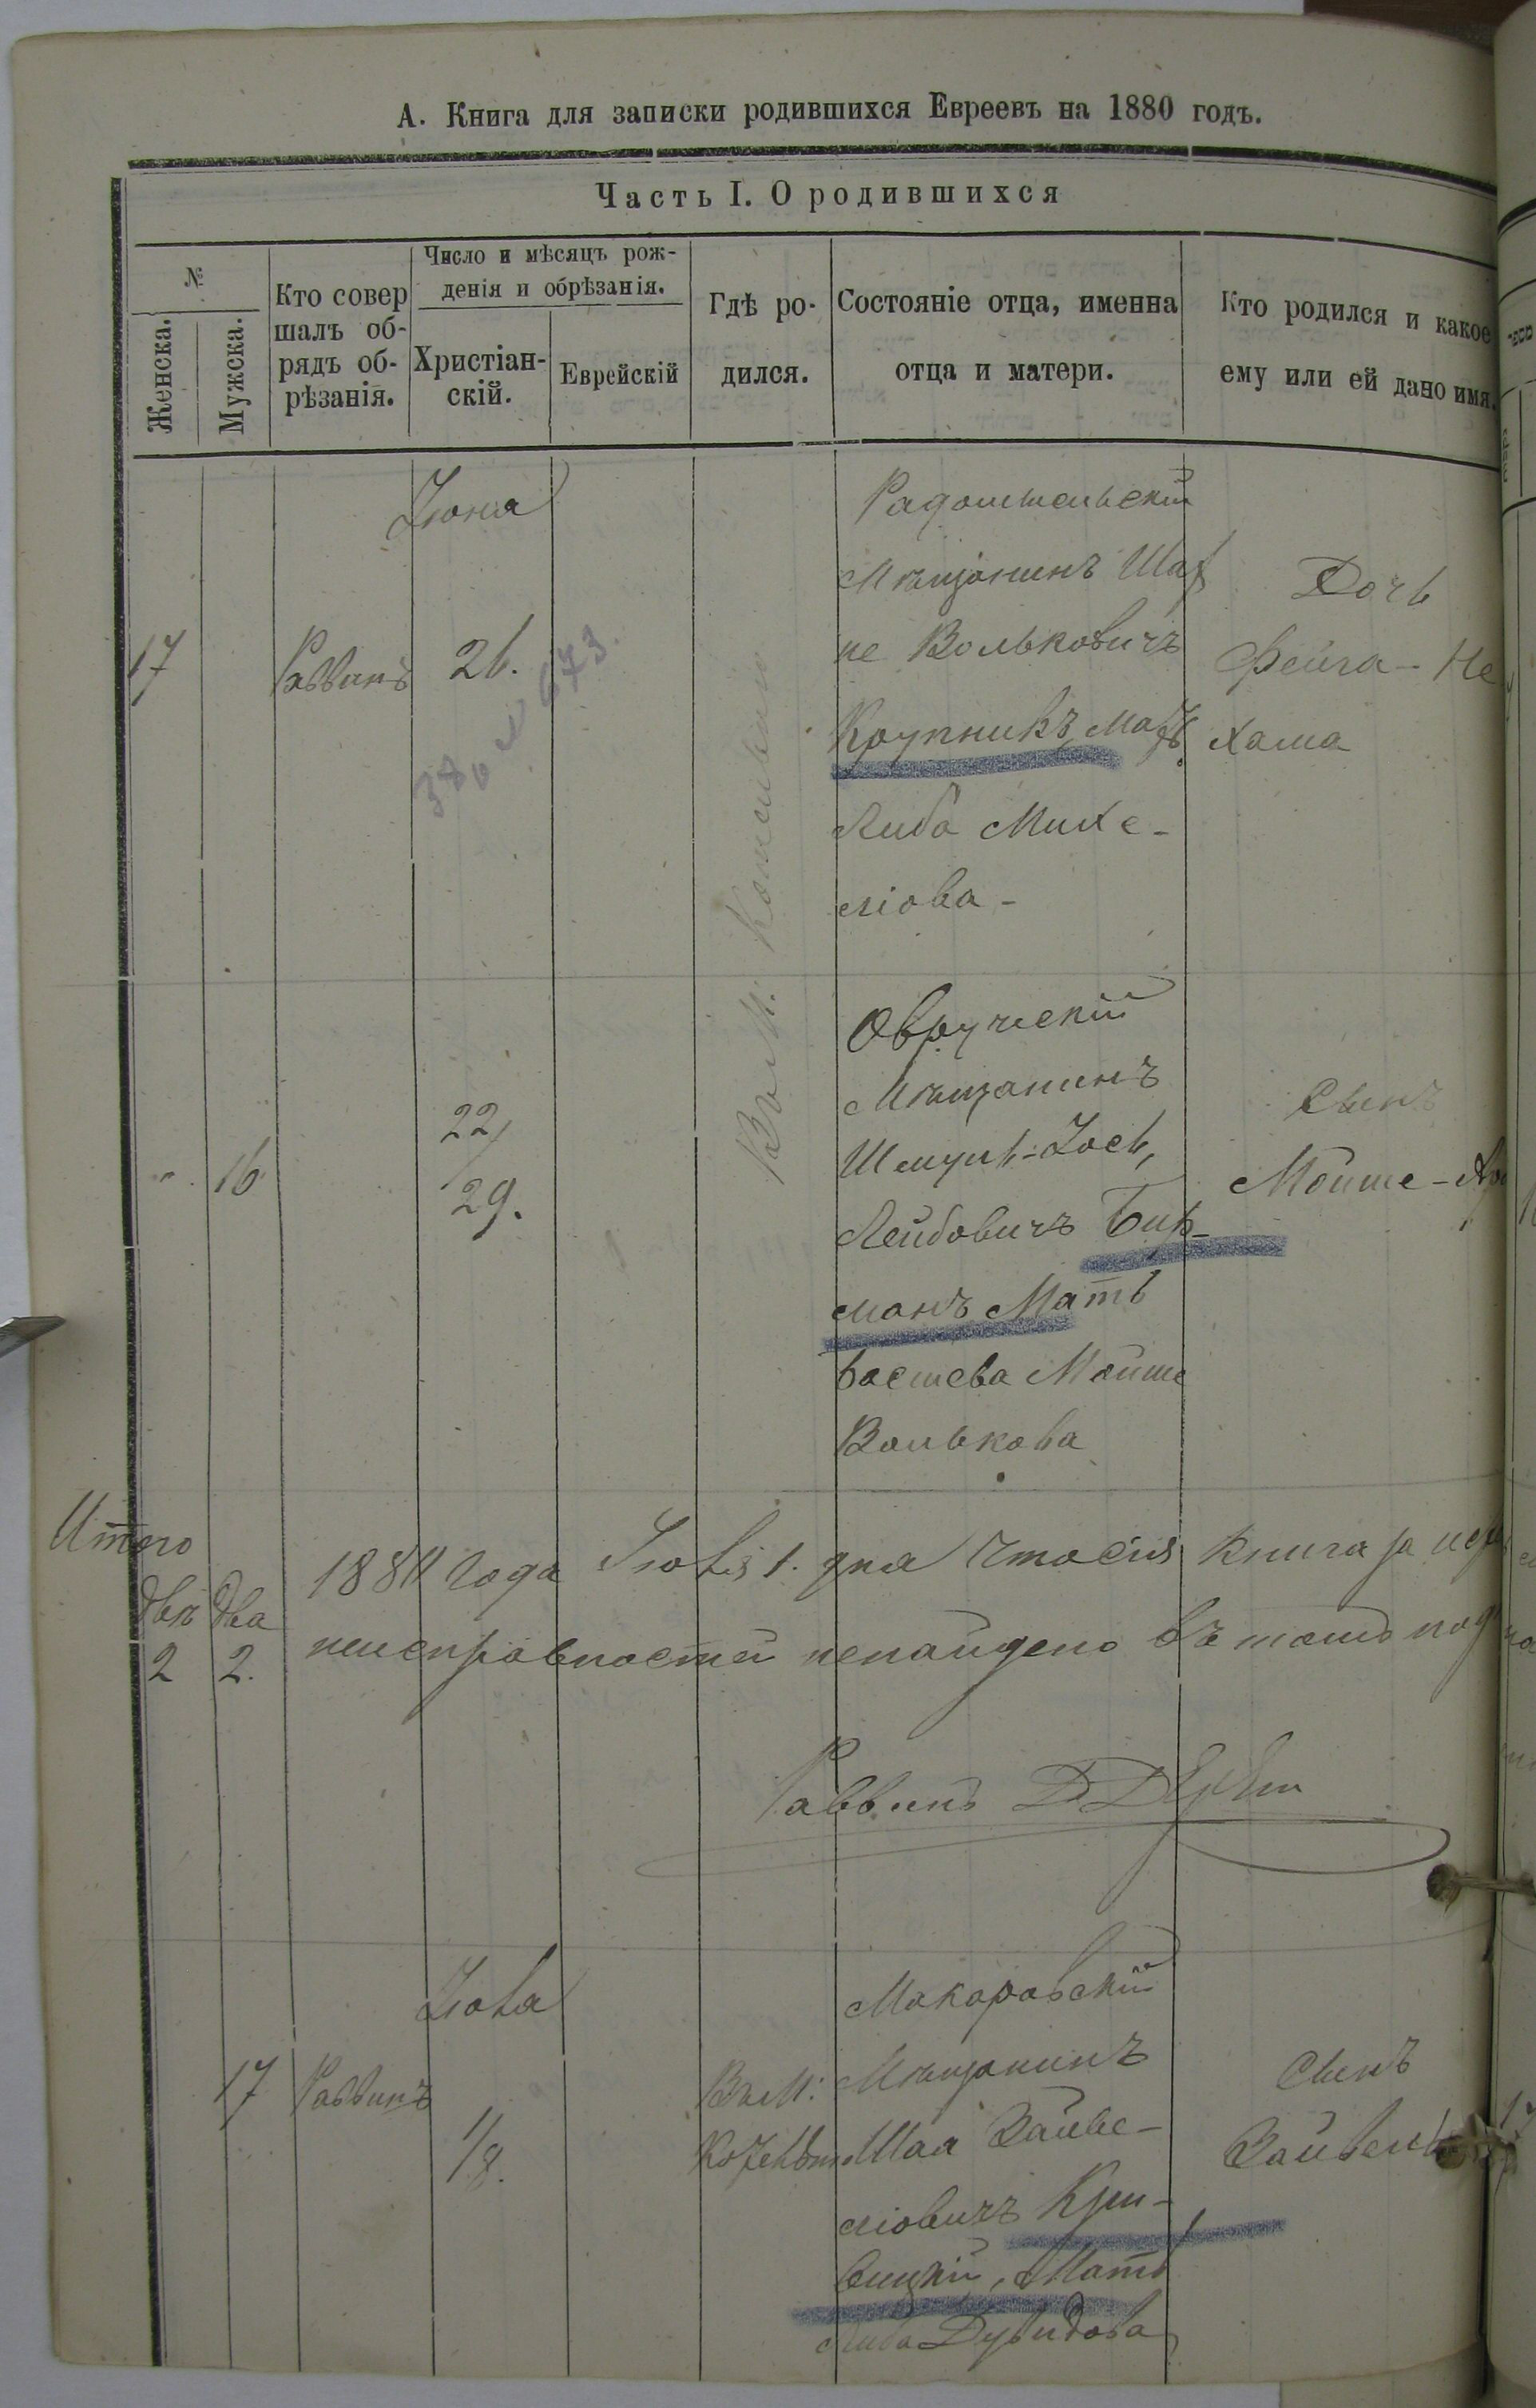 А. Книга для записки родившихся Евреевъ на 1880 годъ.
Часть I. О родившихся
№
Женска.
Мужска.
Кто совер
шалъ об-
рядъ об-
рѣзанія.
Число и мѣсяцъ рож-
денія и обрѣзанія.
Христіан-
скій.
Еврейскій
Гдѣ ро-
дился.
Состояніе отца, именна
отца и матери.
Кто родился и какое
ему или ей дано имя.
Іюня
17
Раввинъ
26.
Радомысльскій
Мѣщанинъ
Вольковичъ
Крупникъ, Мать
Либа Михе-
ліова -
Дочь
Фейга - Не
хама
16
22/
29.
Овручскій
Мѣщанинъ
Шмуль-Іось,
Лейбовичъ Бир-
манъ Мать
Басшева Мойше
Волькова
Сынъ
Мойше -
Итого
двѣ два
2 2.
года 1. дня что сія книга
неисправностей ненайдено въ томъ
Раввинъ
17
Раввинъ
1/8.
Въ М:
Макаровскій
Мѣщанинъ
Шая Зайве-
ліовичъ Кри-
вицкій, Мать
Либа Дувидова
Сынъ
Зайвель